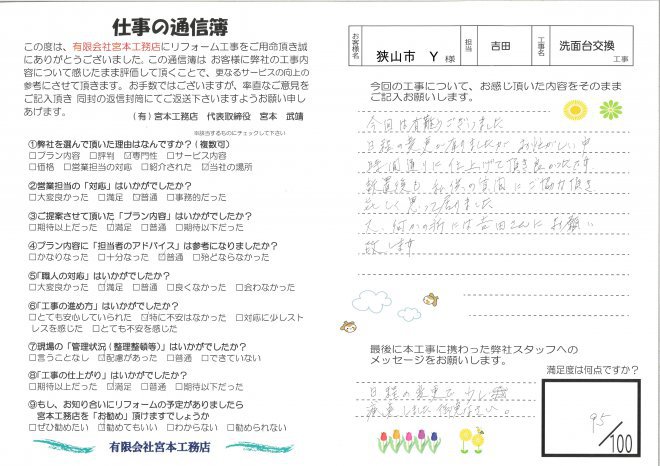 仕事の通信簿
この度は、有限会社宮本工務店にリフォーム工事をご用命頂き誠
にありがとうございました。この通信簿は お客様に弊社の工事内
容について感じたまま評価して頂くことで、更なるサービスの向上の
参考にさせて頂きます。お手数ではございますが、率直なご意見を
ご記入頂き 同封の返信封筒にてご返送下さいますようお願い申し
あげます。
(有)宮本工務店 代表取締役 宮本 武靖
※該当するものにチェックして下さい
①弊社を選んで頂いた理由はなんですか?(複数可)
□プラン内容 □評判 ☑専門性 □サービス内容
□価格 □営業担当の対応 □紹介された ☑当社の場所
②営業担当の「対応」はいかがでしたか?
□大変良かった □満足 ☑普通 □事務的だった
③ご提案させて頂いた「プラン内容」はいかがでしたか?
□期待以上だった ☑満足 □普通 □期待以下だった
④プラン内容に「担当者のアドバイス」は参考になりましたか?
□かなりなった □十分なった ☑普通 □殆どならなかった
⑤「職人の対応」はいかがでしたか?
□大変良かった ☑満足 □普通 □良くない □会わなかった
⑥「工事の進め方」はいかがですか?
□とても安心していられた ☑特に不安はなかった □対応に少しスト
レスを感じた □とても不安を感じた
⑦現場の「管理状況(整理整頓等)」はいかがでしたか?
□言うことなし ☑配慮があった □普通 □できていない
⑧「工事の仕上がり」はいかがでしたか?
□期待以上だった ☑満足 □普通 □期待以下だった
⑨もし、お知り合いにリフォームの予定がありましたら
宮本工務店を「お勧め」頂けますでしょうか
□ぜひ勧めたい ☑勧めてもいい □わからない □勧められない
有限会社宮本工務店
お客様名 狭山市 Y 様 担当 吉田 工事名 洗面台交換 工事
今回の工事について、お感じ頂いた内容をそのまま
ご記入お願いします。
今回は有難うございました
日程の変更がありましたが お忙しい中
時間通りに仕上げて頂き良かったです
にご協力頂き
思って居りました
又、何かの折には吉田さんにお願い
致します
最後に本工事に携わった弊社スタッフへの
メッセージをお願いします。
満足度は何点ですか?
日程の変更で少し
95/100